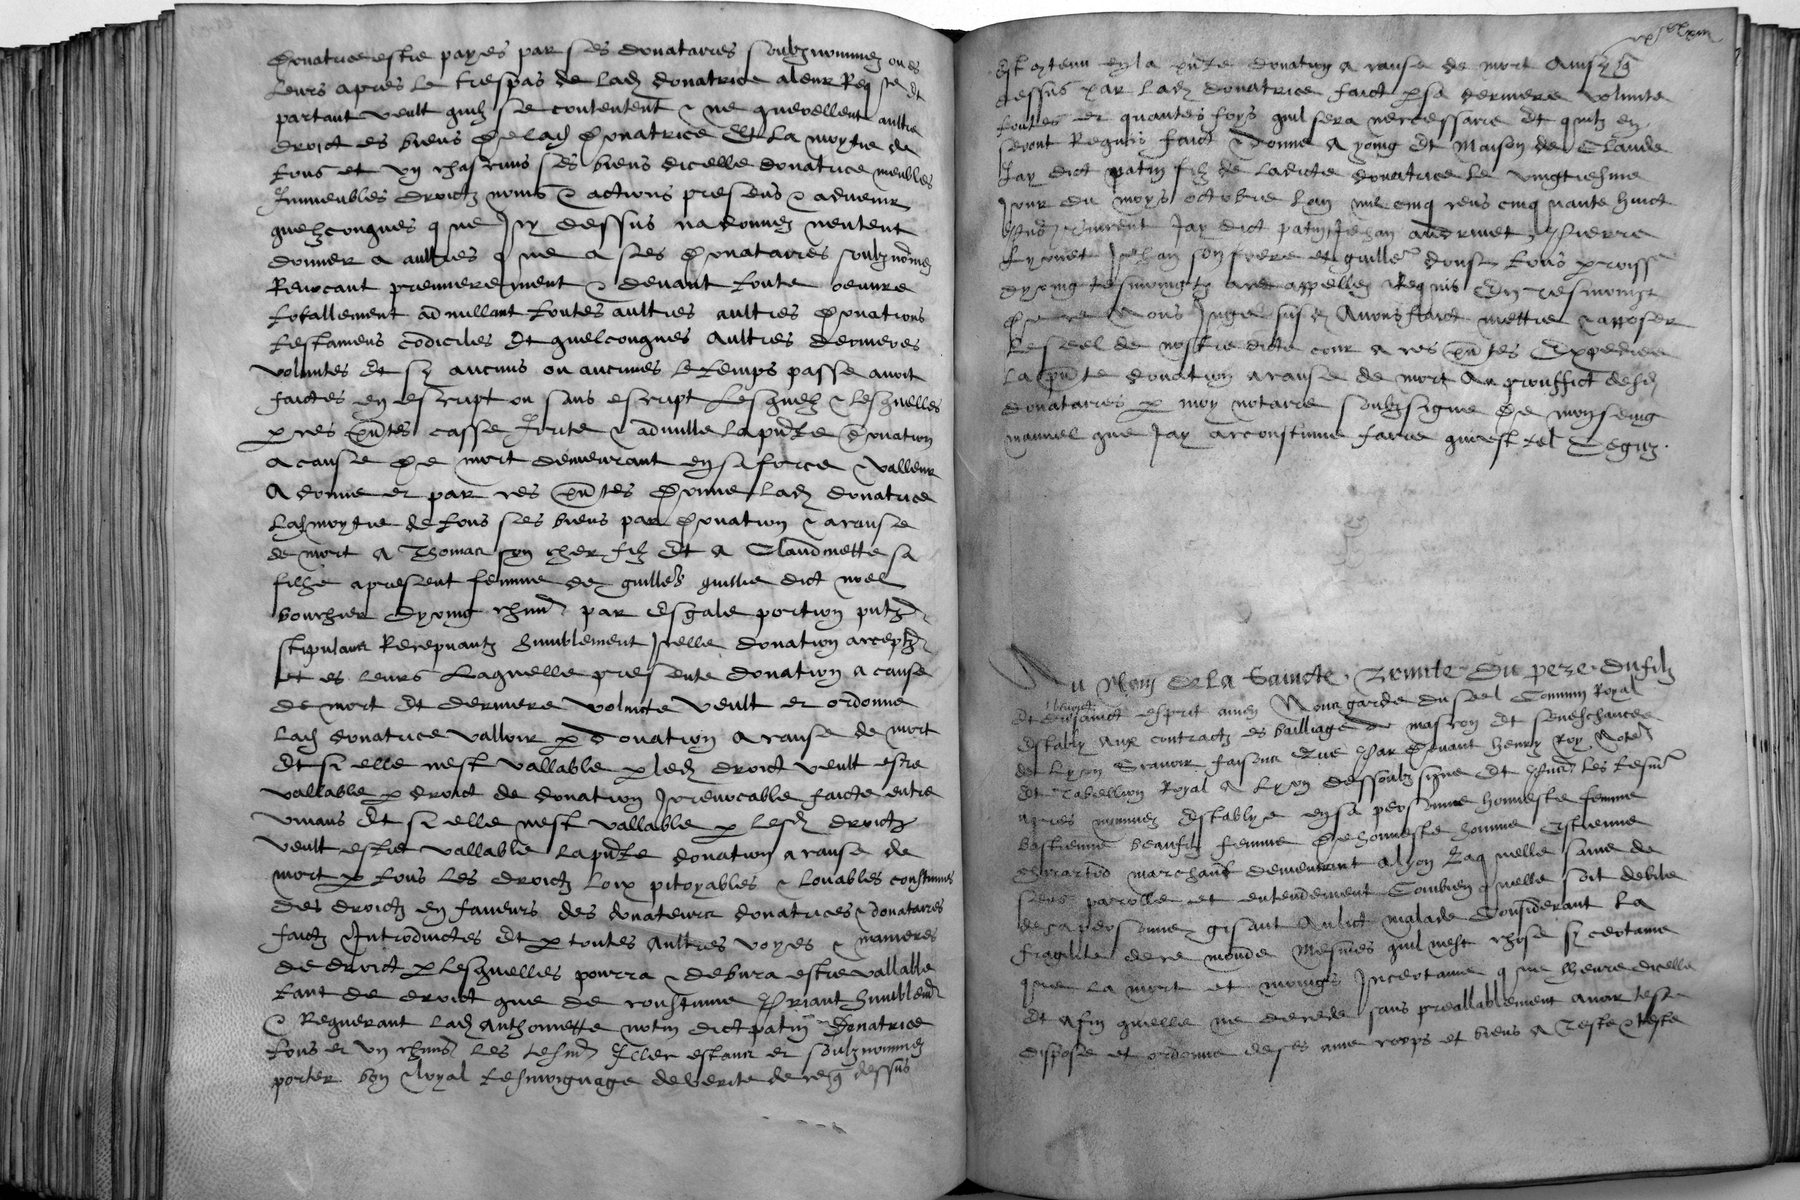 Donatrice estre payes par ses donataires soubznommez ou es
leurs apres le trespas de ladt donatrice a leur Req ste Et
partant veult quilz se contentent & ne querellent aultre
droict es biens de ladt Donatrice Et la moytie de
tous et un chascuns ses biens dicelle donatrice meubles
Immeubles droictz noms & actions presens & advenir
quelzconques que Icy dessus na donnez nentent
donner a aultres que a ses Donataires soubznomez
Revocant premierement & devant toute oeuvre
totallement adnullant toutes aultres aultres Donations
testamens codicilles Et quelconques Aultres dernieres
voluntes Et sy aucuns ou aucunes le temps passe avoit
faictes en escript ou sans escript lesquelz & lesquelles
p ces pntes casse Irrite & adnulle la pnte Donation
a cause De mort demeurant en sa force & valleur
A donne et par ces pntes Donne ladt donatrice
ladt moytie de tous ses biens par Donation & a cause
de mort A Thomas son cher filz Et A Claudinette sa
filhe a present femme de guille dict noel
bouchier dyoing par esgale portion
stipulans Recepvantz humblement Icelle donation accept
et es leurs Laquelle presente donation a cause
de mort Et derniere volunte veult et ordonne
ladt donatrice valloir p donation a cause de mort
Et si elle nest vallable p ledt droict veult estre
vallable p droict de donation Irrevocable faicte entre
vivans Et si elle nest vallable p lesdt droictz
veult estre vallable la pnte donation a cause de
mort p tous les droictz loix pitoyables & louables constumes
des droictz en faveurs des donateurs donatrices & donataires
faictz Introduictes Et p toutes Aultres voyes & manieres
de droict p lesquelles pourra & debvra estre vallable
tant de droict que de constume Priant humblemt
& Requerant ladt Anthonnette notin dict patin Donatrice
tous et un chūns les tesmz Illec estans et soubznommez
porter bon & loyal tesmoignage de verite de ce q dessus
Est contenu en la pnte donation a cause de mort Ainsy q
dessus par ladt donatrice faict p sa derniere volunte
toutes et quantes foys quil sera necessaire Et quilz en
seront Requis faict & donne A yoing Et maison de Claude
Jay dict patin filz de ladicte donatrice le vingtiesme
Jour du moys octobre lan mil cinq cens cinquante huict
Pns Vincent Jay dict patin Jehan andrinet Pierre
Jehan son frere et guille tous paroisse
dyoing tesmoingtz ace appellez & Requis En tesmoing
De ce Nous Juge susdt Avons faict mettre & apposer
le seel de nostre dicte cour a ces pntes Expediee
la pnte donation a cause de mort Au prouffict desdt
donataires p moy notaire soubzsigne De mon seing
manuel que Jay acconstume faire qui est tel Degruz.
Au Nom de la Saincte Trinite Du pere Du filz
Et du benoict sainct esprit amen Nous garde du seel Commun Royal
Estably aux contractz es bailliage de mascon Et seneschaucee
de Lyon Scavoir faisons Que Par Devant henry Roy Notere
Et Tabellion Royal A Lyon dessoubz signe Et Pns les tesmz
apres nommez Establye en sa personne honneste femme
bastienne beaufilz femme De honneste homme Estienne
marchant demeurant A lyon Laquelle saine de
sens parolle et entendement Combien quelle soit debile
de sa personne gisant Au lict malade Considerant la
fragilite de ce monde Mesmes quil nest chose sy certaine
que la mort et moings Incertaine que lheure dicelle
Et Afin quelle ne decede sans preallablement avoir teste
dispose et ordonne de ses ame corps et biens A Teste & teste